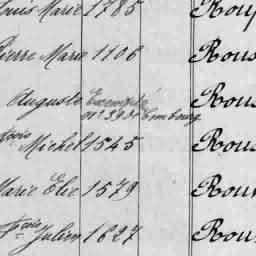 Louis Marie 1785 Rouj
Pierre Marie 1106 Rous
Auguste Exempté Rous
nº 390 Embourg
fçois Michel 1545 Rous
Marie Elie 1579 Rou
fçois Julien 1627 Rou